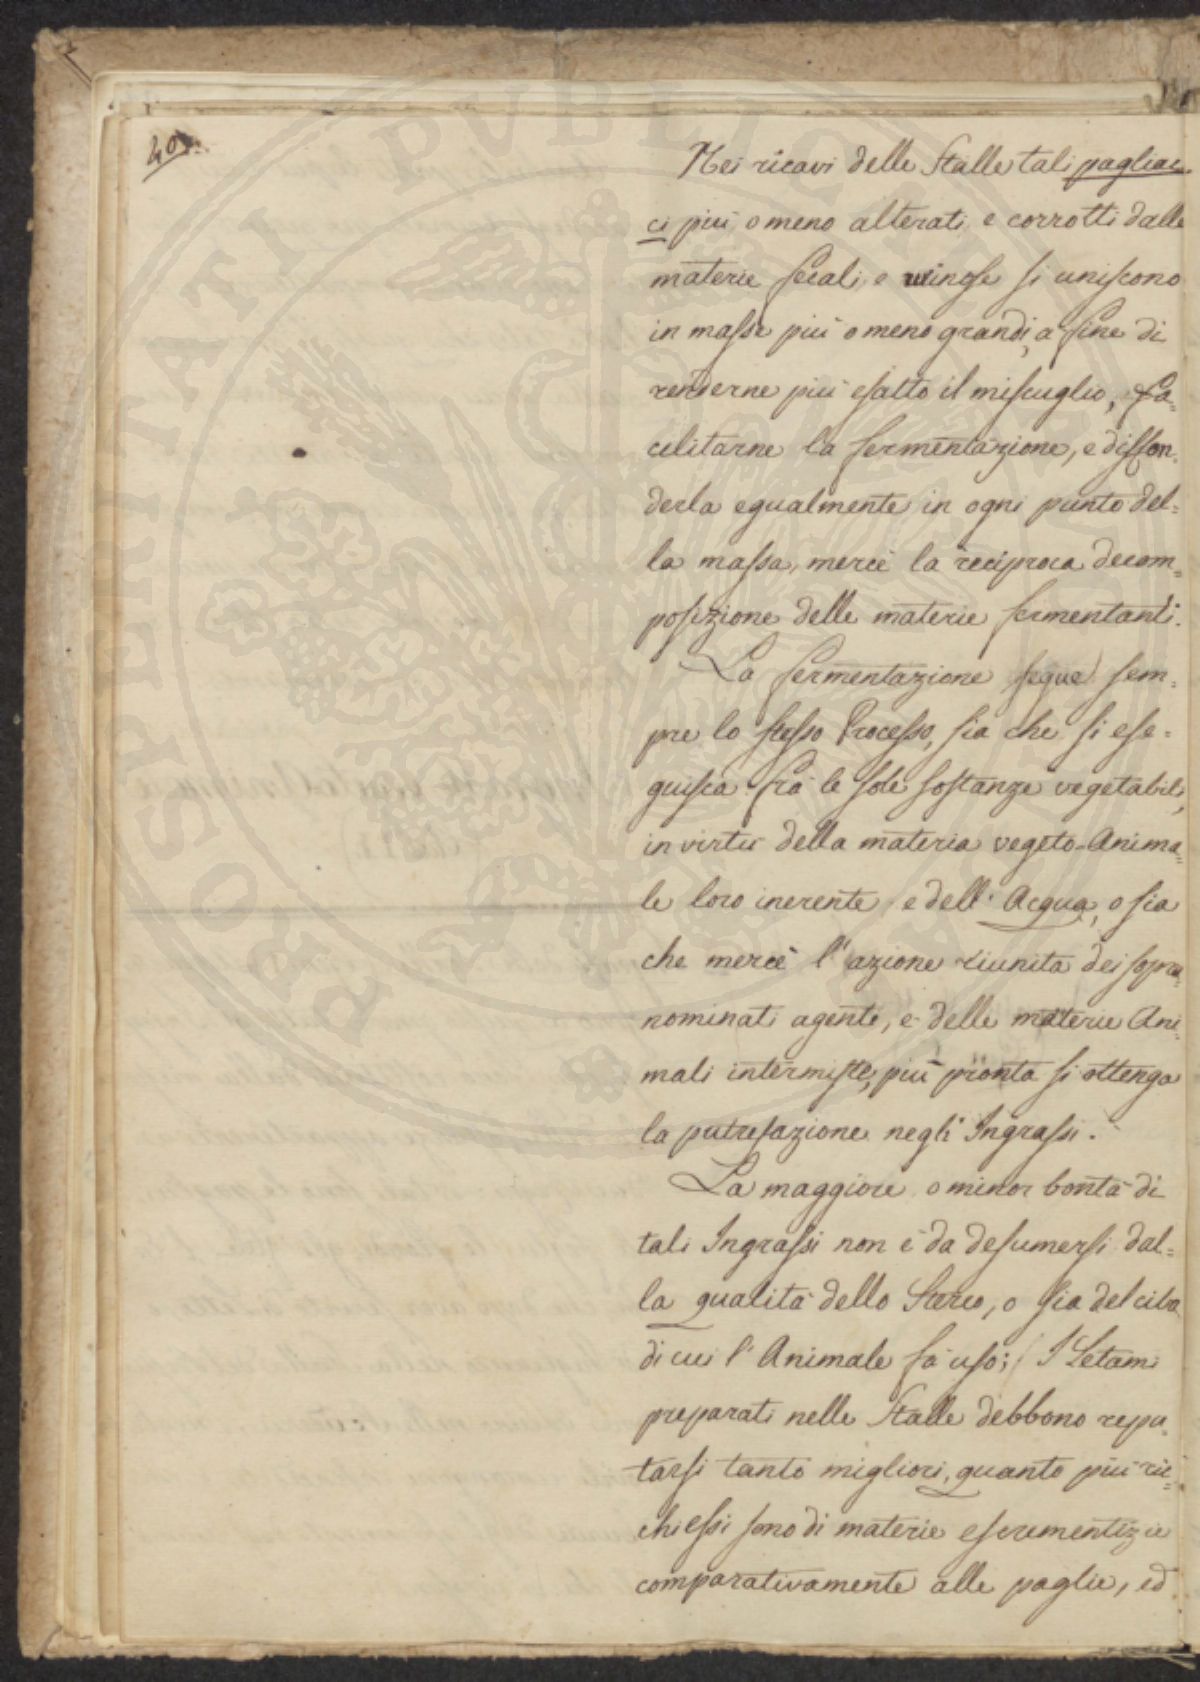 40.
Nei ricavi delle Stalle tali pagliac-
ci più o meno alterati, e corrotti dalle
materie fecali, e urinose si uniscono
in masse più o meno grandi, a fine di
renderne più esatto il miscuglio, fa-
cilitarne la fermentazione, e diffon-
derla egualmente in ogni punto del-
la massa, mercè la reciproca decom-
posizione delle materie fermentanti.
La fermentazione segue sem-
pre lo stesso Processo, sia che si ese-
guisca frà le sole sostanze vegetabili,
in virtù della materia vegeto-Anima-
le loro inerente, e dell'Acqua, o sia
che mercè l'azione riunita dei sopra-
nominati agenti, e delle materie Ani-
mali intermiste, più pronta si ottenga
la putrefazione negli Ingrassi.
La maggiore o minor bontà di
tali Ingrassi non è da desumersi dal-
la qualità dello Sterco, o sia del cibo
di cui l'Animale fà uso; I Letami
preparati nelle Stalle debbono repu-
tarsi tanto migliori, quanto più ric-
chi essi sono di materie escrementizie
comparativamente alle paglie, ed
PROSPERITATI PVBLICAE